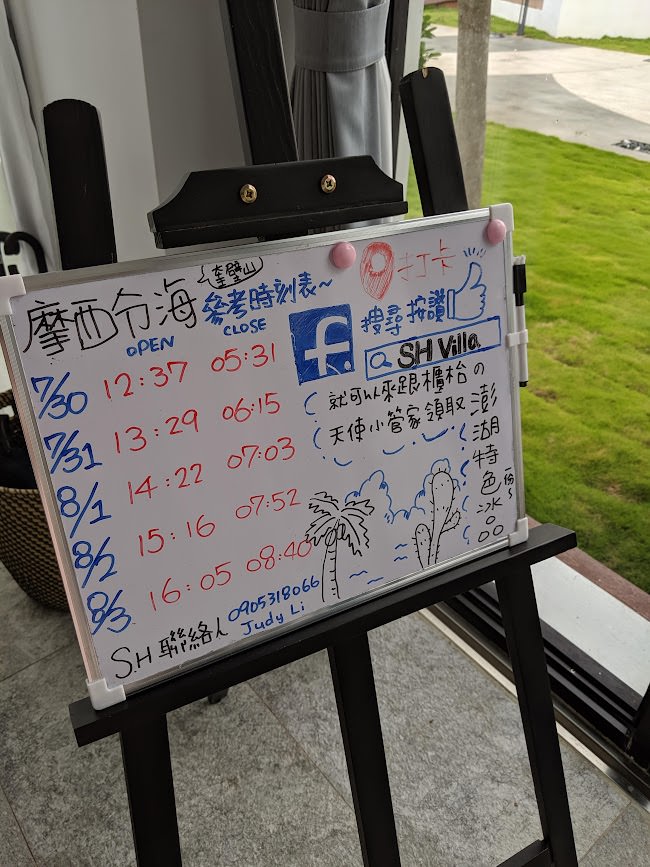 奎壁山
摩西分海 參考時刻表~
OPEN CLOSE
7/30 12:37 05:31
7/31 13:29 06:15
8/1 14:22 07:03
8/2 15:16 07:52
8/3 16:05 08:40
S.H 聯絡人 0905318066
Judy Li
打卡
f 搜尋 按讚
SH Villa
就可以來跟櫃枱の
天使小管家領取
澎湖特色冰品
一份~